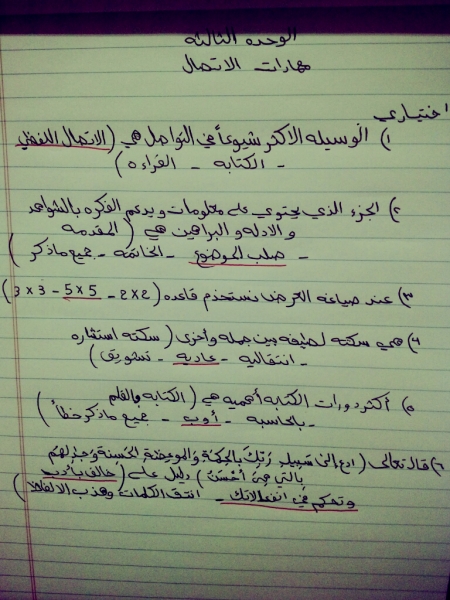 الوحده الثالثه
مهارات الاتصال
اختياري
١) الوسيله الاكثر شيوعاً في التواصل هي (الاتصال اللفظي
- الكتابه - القراءه)
٢) الجزء الذي يحتوي على معلومات ويدعم الفكره بالشواهد
والادله والبراهين هي (المقدمه
- صلب الموضوع - الخاتمه - جميع ماذكر)
٣) عند صياغه العرض نستخدم قاعده (2×2 - 5×5 - 3×3)
٤) هي سكته لطيفه بين جمله وأخرى (سكته استثاره
- انتقاليه - عاديه - تشويق)
٥) أكثر دورات الكتابه أهميه هي (الكتابه والقلم
- بالحاسبه - أوب - جميع ماذكر خطأ)
٦) قال تعالى (ادع إلى سبيل ربك بالحكمة والموعظة الحسنة وجدلهم
بالتي هي أحسن) دليل على (خالف بأدب
وتحكم في انفعالاتك - انتق الكلمات وهذب الالفاظ)